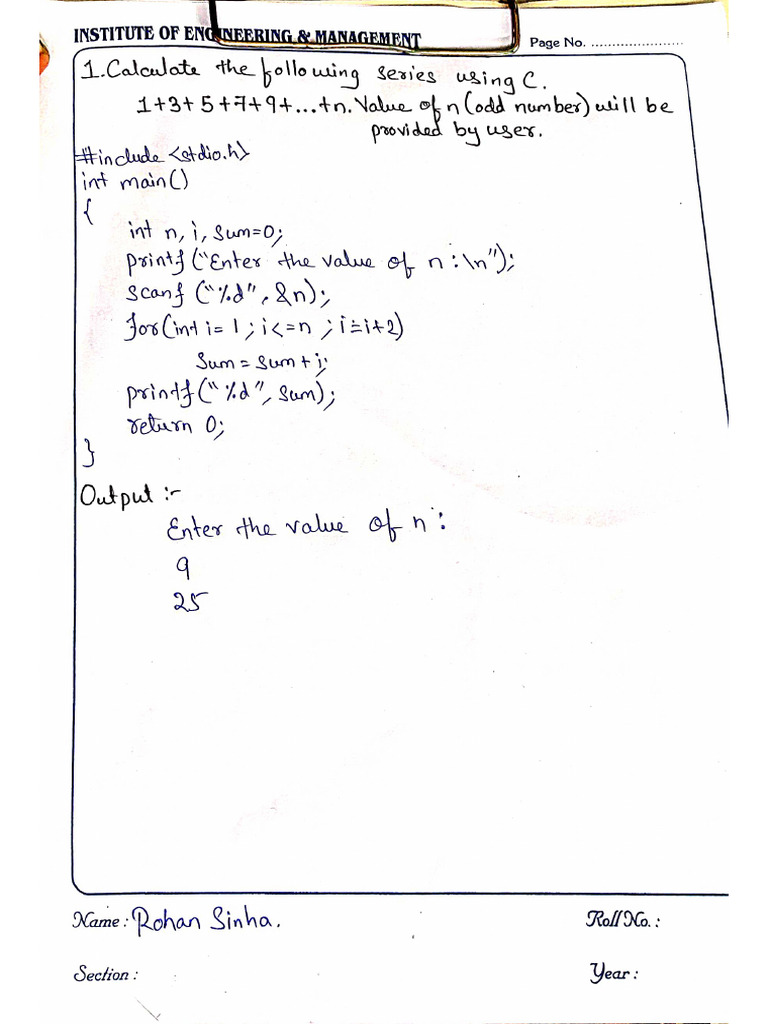 INSTITUTE OF ENGINEERING & MANAGEMENT
Page No. ......................
1. Calculate the following series using C.
1+3+5+7+9+...+n. Value of n (odd number) will be
provided by user.
#include <stdio.h>
int main()
{
int n, i, sum=0;
printf("Enter the value of n :\n");
scanf ("%d", &n);
for(int i= 1 ; i<=n ; i=i+2)
sum = sum + i;
printf("%d", sum);
return 0;
}
Output :-
Enter the value of n :
9
25
Name : Rohan Sinha.
Roll No. :
Section :
Year :